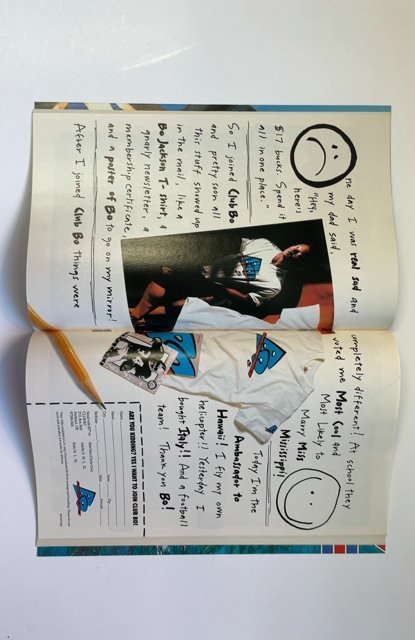 One day I was real sad and
my dad said,
"Hey,
here's
$17 bucks. Spend it
all in one place."
So I joined Club Bo
and pretty soon all
this stuff showed up
in the mail, like a
Bo Jackson T-shirt, a
gnarly newsletter, a
membership certificate,
and a poster of Bo to go on my mirror!
After I joined Club Bo things were
completely different! At school they
voted me Most Cool and
Most Likely to
Marry Miss
Mississippi!
Today I'm the
Ambassador to
Hawaii! I fly my own
helicopter!! Yesterday I
bought Italy!! And a football
team! Thank you Bo!
ARE YOU KIDDING? YES I WANT TO JOIN CLUB BO!